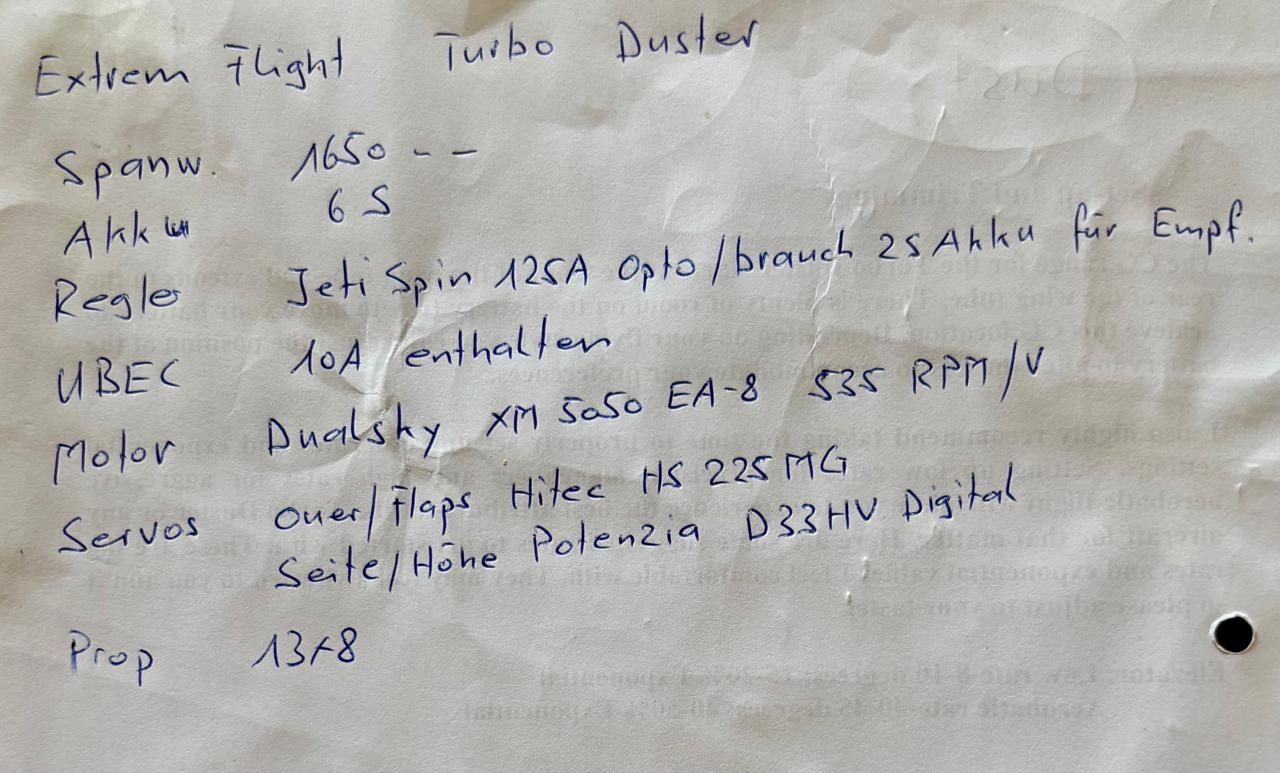 Extrem Flight Turbo Duster
Spanw. 1650 --
Akku 6 S
Regler Jeti Spin 125A Opto/brauch 2S Akku für Empf.
UBEC 10A enthalten
Motor Dualsky XM 5050 EA-8 535 RPM/V
Servos Quer/Flaps Hitec HS 225 MG
Seite/Höhe Potenzia D33HV Digital
Prop 13x8